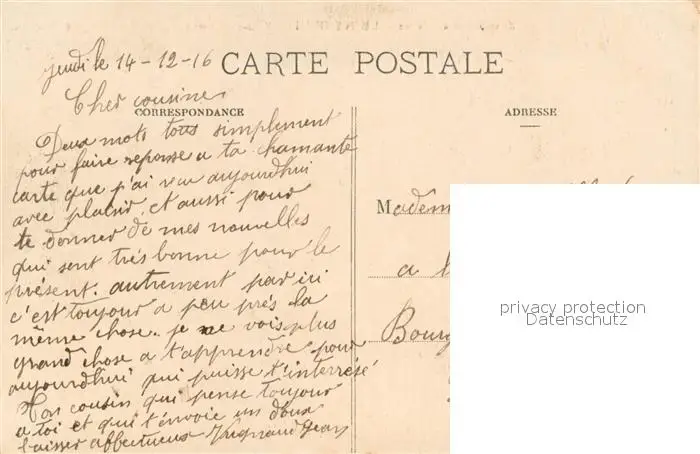 jeudi le 14-12-16 CARTE POSTALE
Cher cousine
CORRESPONDANCE
ADRESSE
Deux mots tous simplement
pour faire reponse a ta chamante
carte que j'ai reçu aujourdhui
avec plaisir. et aussi pour
te donner de mes nouvelles
qui sont très bonne pour le
présent. autrement par ici
c'est toujour a peu prés la
même chose. je ne vois plus
grand chose a t'apprendre pour
aujourdhui qui puisse t'interésé
Ton cousin qui pense toujour
a toi et qui t'envoie un doux
baisser affectueux Jean
Madem
a
Bourg
privacy protection
Datenschutz